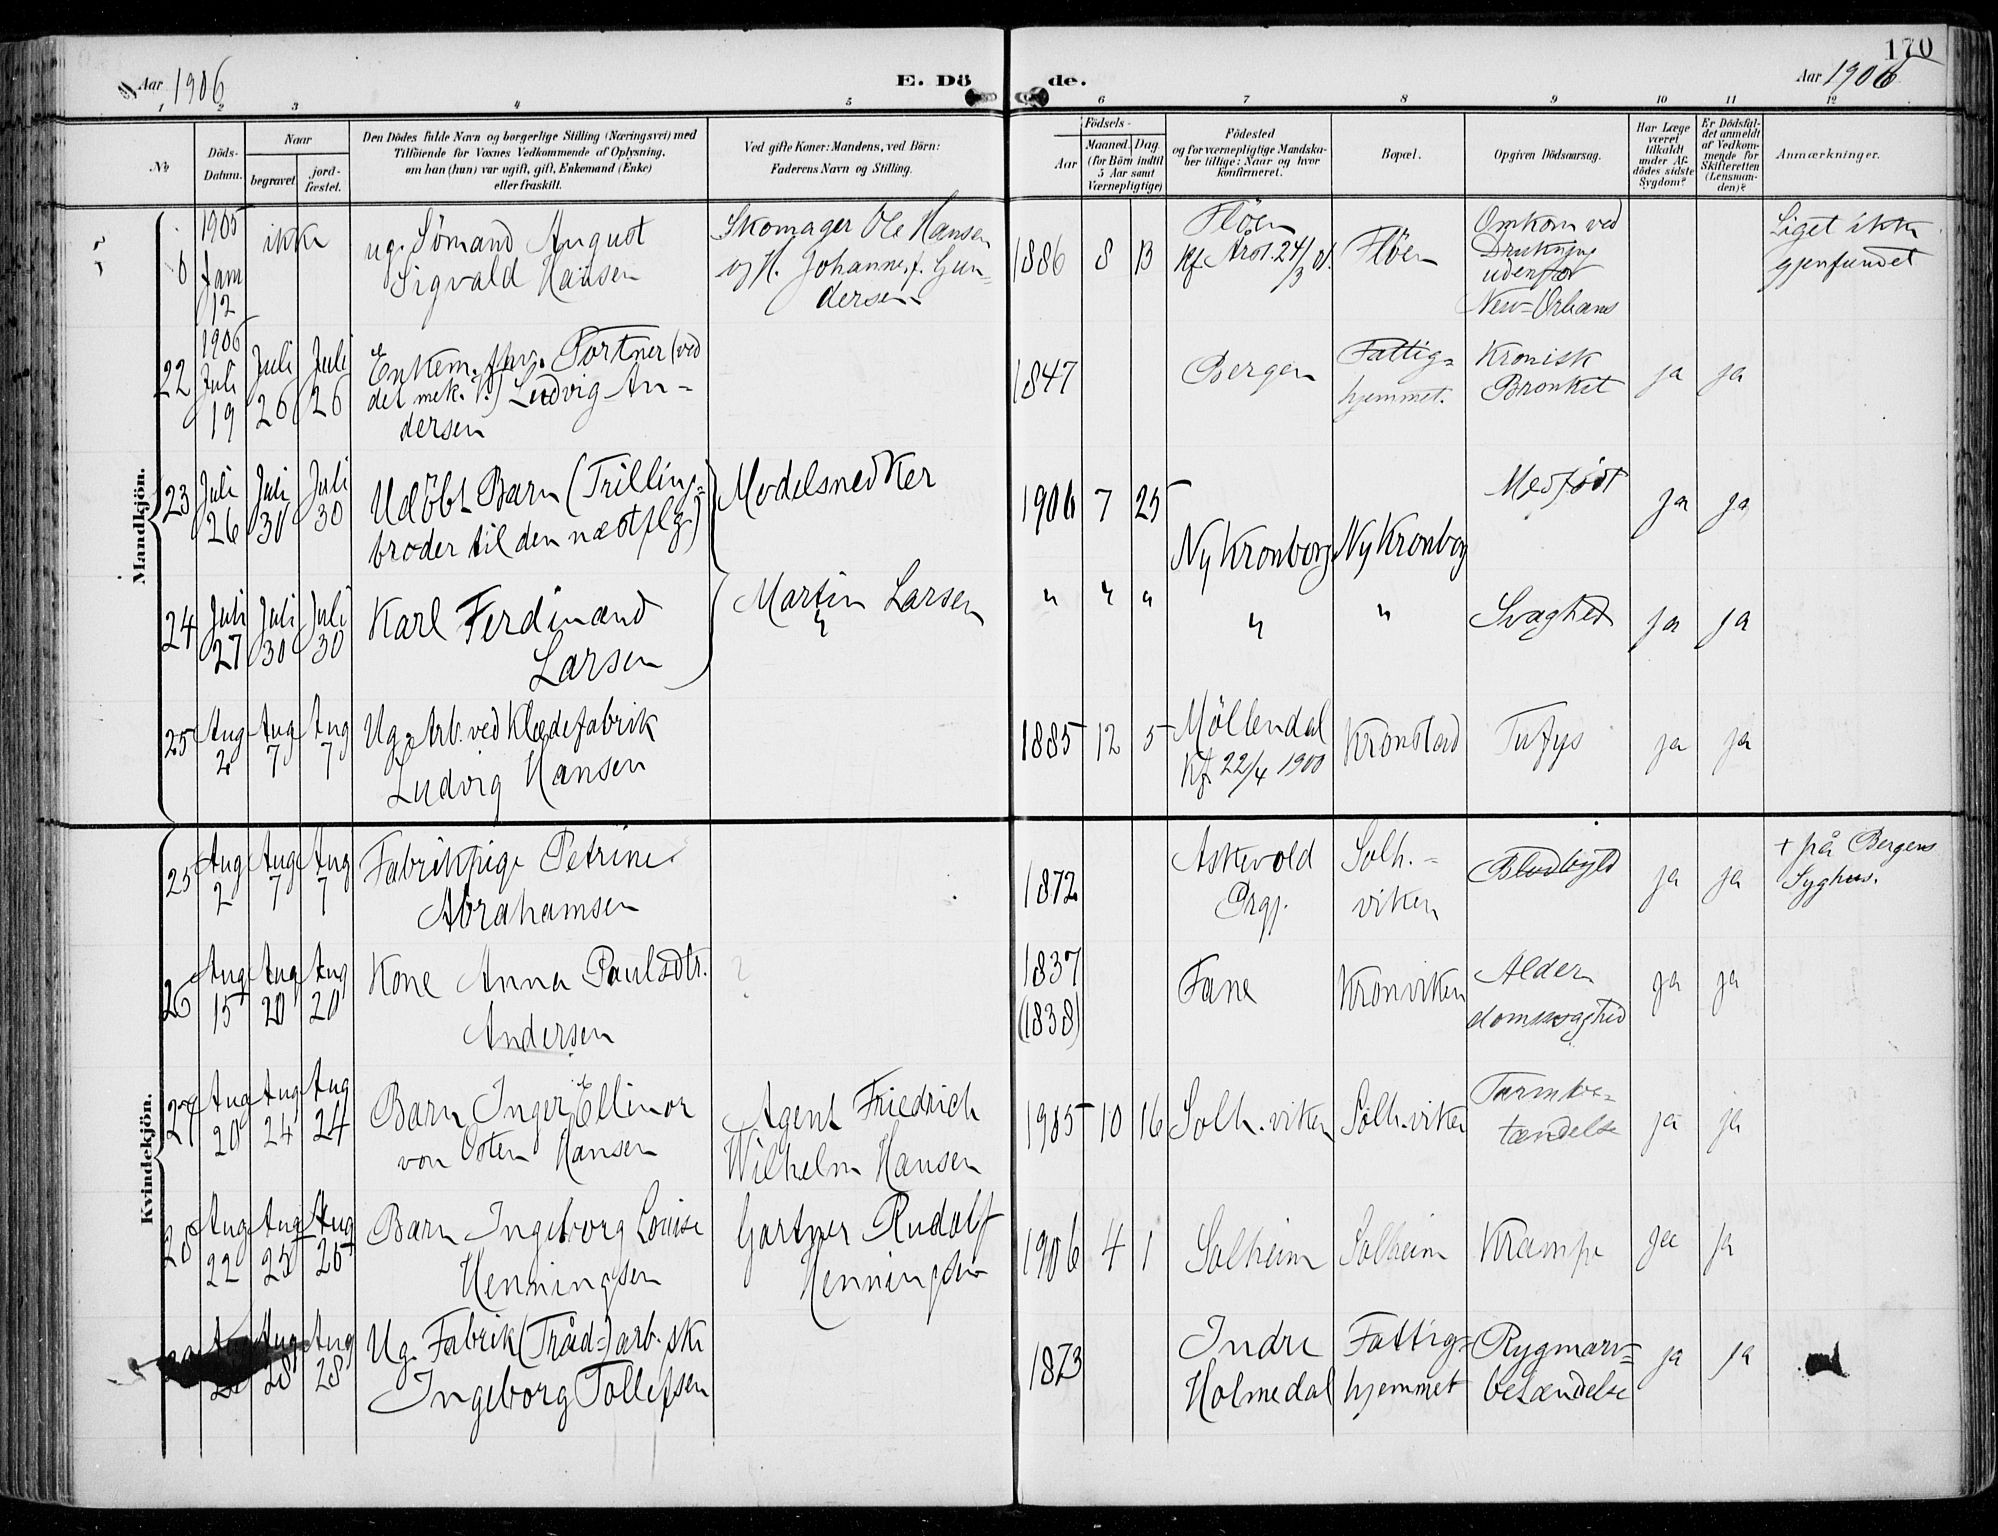 Aar 1906
E. Döde.
170
Aar 1906
1 2 3 4 5 6 7 8 9 10 11 12
No
Döds-Datum.
Naar
begravet.
jord-fæstet.
Den Dödes fulde Navn og borgerlige Stilling (Næringsvei) med
Tilföiende for Voxnes Vedkommende af Oplysning,
om han (hun) var ugift, gift, Enkemand (Enke)
eller fraskilt.
Ved gifte Koner: Mandens, ved Börn:
Faderens Navn og Stilling.
Födsels-
Aar
Maaned. Dag.
(for Börn indtil
5 Aar samt
Værnepligtige)
Födested
og for værnepligtige Mandska-
ber tillige: Naar og hvor
konfirmeret.
Bopæl.
Opgiven Dödsaarsag.
Har Læge
været
tilkaldt
under Af-
dödes sidste
Sygdom?
Er Dödsfal-
det anmeldt
af Vedkom-
mende for
Skifteretten
(Lensman-
den)?
Anmærkninger.
Mandkjön.
1905
Jan
12
ikke
ug. Sömand August
Sigvald Hansen
Skomager Ole Hansen
og H. Johanne f. Gun-
dersen
1886 8 13
Fløen
Kf. Arst. 24/3 01.
Fløen
Omkom ved
Drukning
udenfor
New-Orleans
Liget ikke
gjenfundet
22
1906
Juli
19
Juli
26
Juli
26
Enkem. fhv. Portner (ved
det mek. V.) Ludvig An-
dersen
1847
Bergen
Fattig-
hjemmet.
Kronisk
Bronket
ja ja
23
Juli
26
Juli
30
Juli
30
Udöbt Barn (Trilling-
broder til den næstflg.)
Modelsnedker
1906 7 25
Ny Kronborg
Ny Kronborg
Medfödt
ja ja
24
Juli
27
Juli
30
Juli
30
Karl Ferdinand
Larsen
Martin Larsen
" " "
"
"
Svaghed
ja ja
25
Aug
2
Aug
7
Aug
7
Ug. Arb. ved Klædefabrik
Ludvig Hansen
1885 12 5
Möllendal
Kf. 22/4 1900
Kronstad
Tyfus
ja ja
Kvindekjön.
25
Aug
2
Aug
7
Aug
7
Fabrikpige Petrine
Abrahamsen
1872
Askevold
Prgj.
Solh.-
viken
Blodbyld
ja ja
+ på Bergens
Syghus.
26
Aug
15
Aug
20
Aug
20
Kone Anna Paulsdtr.
Andersen
?
1837
(1838)
Fane
Kronviken
Alder
domssvaghed
ja ja
27
Aug
20
Aug
24
Aug
24
Barn Inger Ellinor
von Osten Hansen
Agent Friedrich
Wilhelm Hansen
1905 10 16
Solh.viken
Solh.viken
Tarmbe-
tændelse
ja ja
28
Aug
22
Aug
25
Aug
25
Barn Ingeborg Louise
Henningsen
Gartner Rudolf
Henningsen
1906 4 1
Solheim
Solheim
Krampe
ja ja
Aug
28
Aug
28
Ug. Fabrik (Tråd-)arb.ske
Ingeborg Tollefsen
1873
Indre
Holmedal
Fattig-
hjemmet
Rygmarv-
betændelse
ja ja